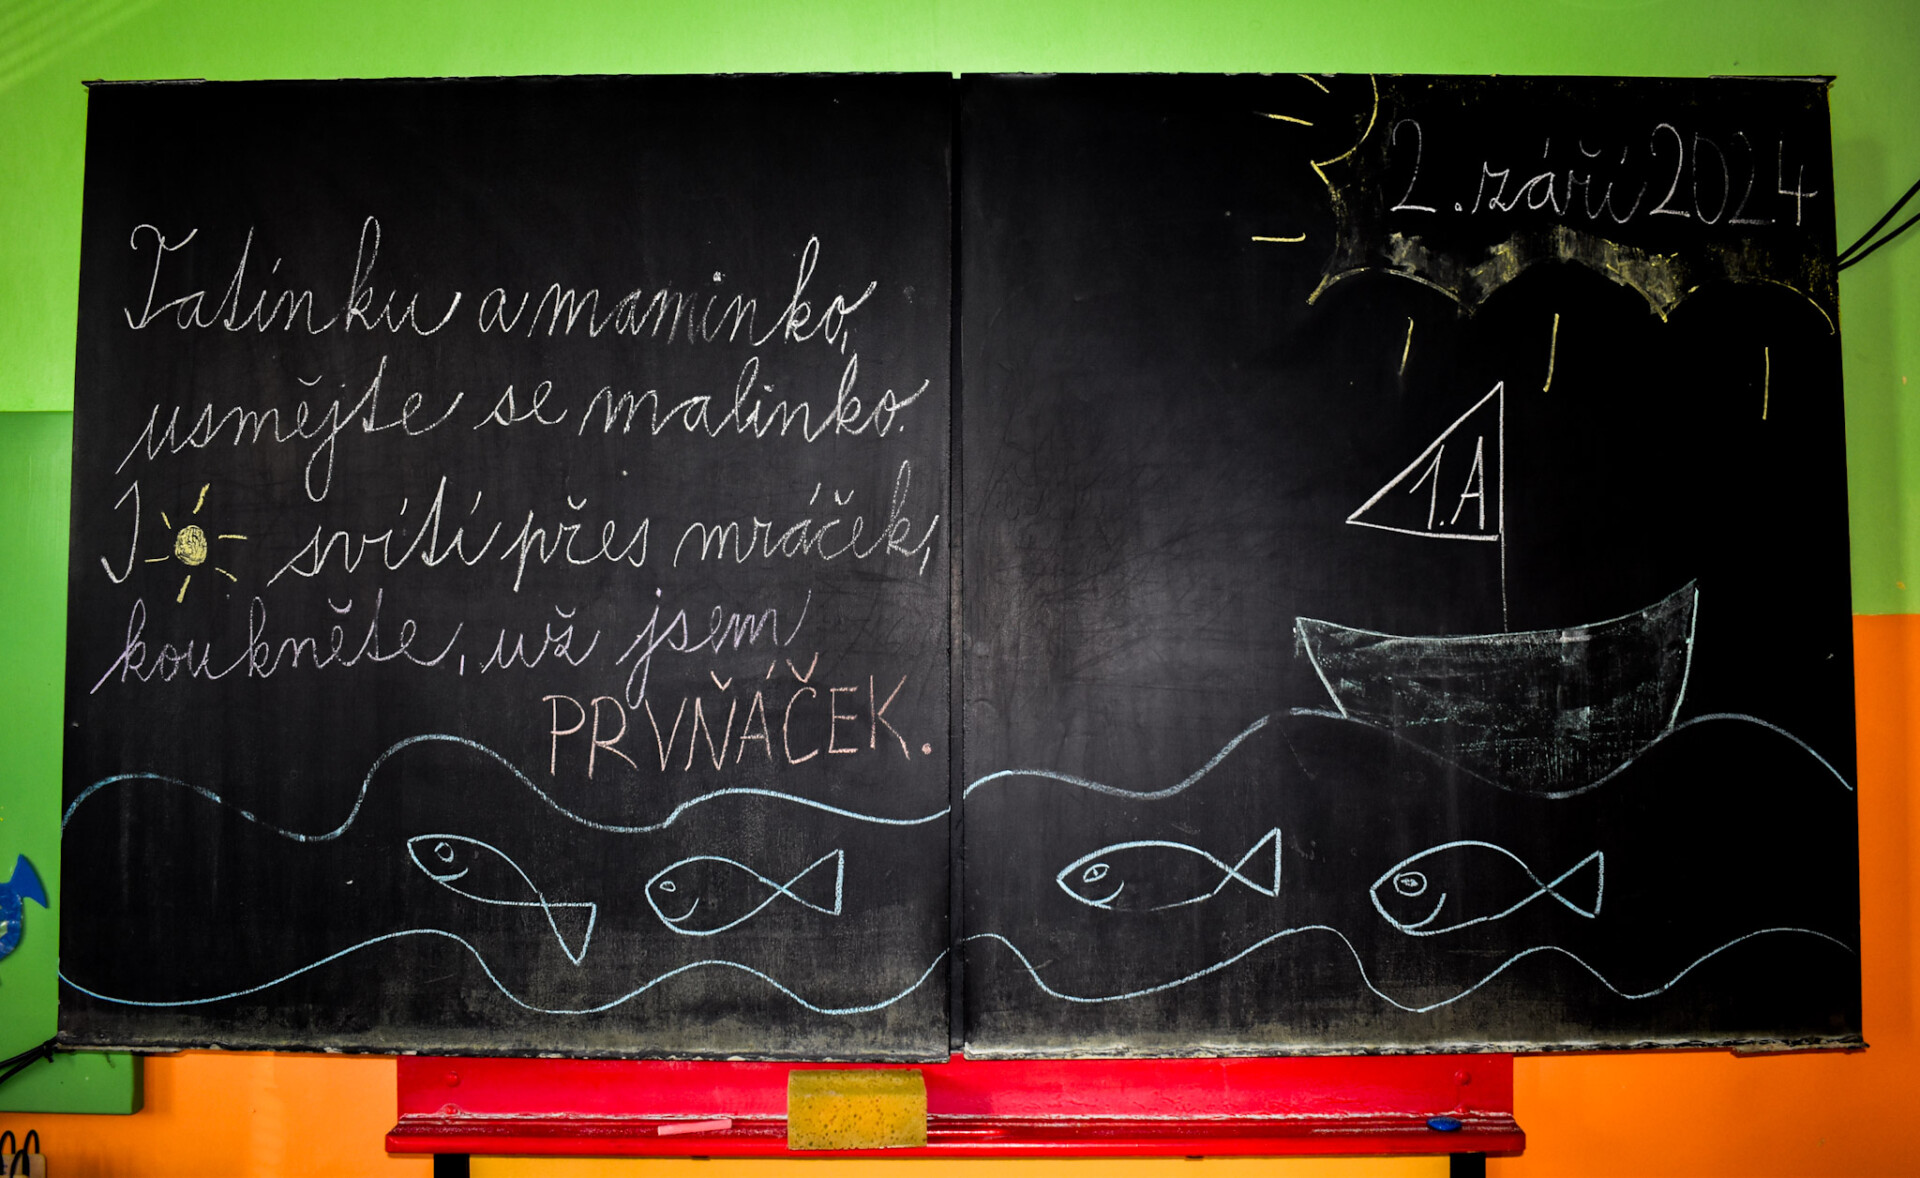 Tatínku a maminko,
usmějte se malinko.
I svítí přes mráček,
koukněte, už jsem
PRVŇÁČEK.
2. září 2024
1.A